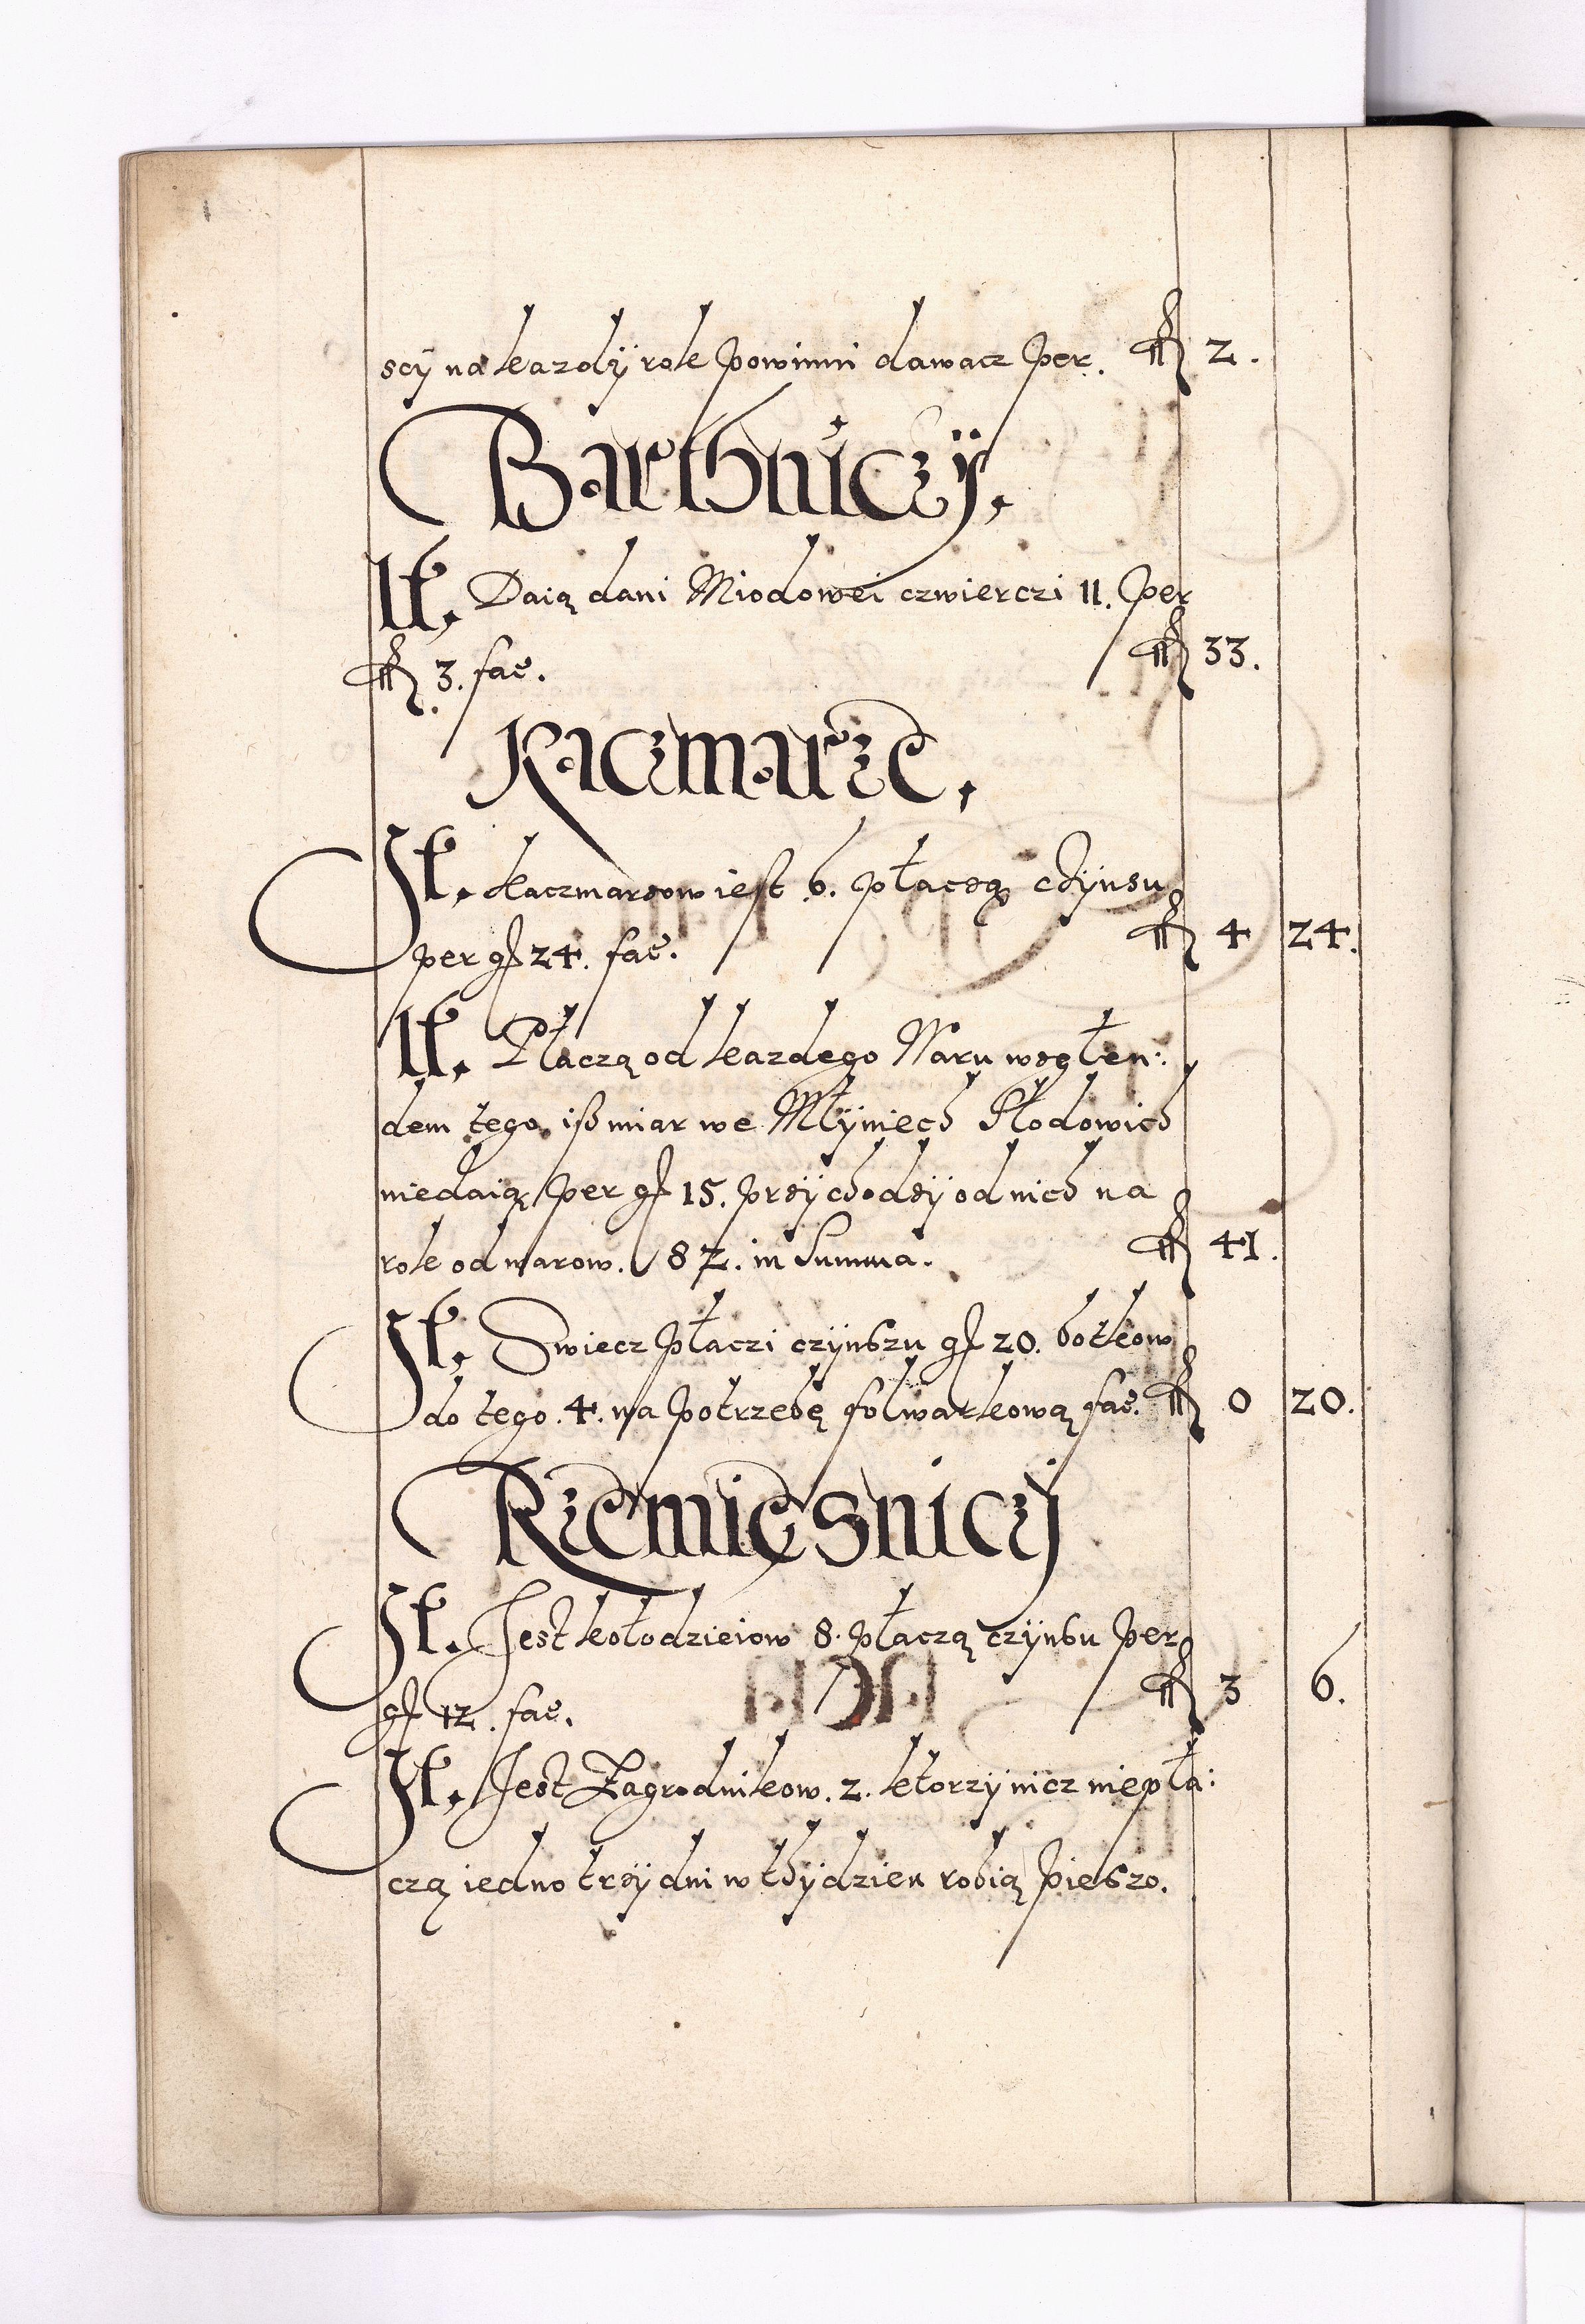 scÿ na kazdÿ rok powinni dawacz per. fl 2.
Barthniczÿ.
It. Daią dani Miodowei czwierczi 11. per
fl 3. fac. fl 33.
Kaczmarze.
It. kaczmarzow iest .6. płaczą czÿnszu
per gr 24. fac. fl 4 24.
It. Płaczą od kazdego Waru wzglen:
dem tego, iß miar we Młÿniech Słodowich
niedaią per gr 15. przÿchodzÿ od nich na
rok od warow. 82. in Summa. fl 41.
It. Swiecz płaczi czÿnszu gr 20. botkow
do tego .4. na potrzebę folwarkową fac. fl 0 20.
Rzemięsniczÿ
It. Jest kołodzieiow 8. płaczą czÿnsu per
gr 12. fac. fl 3 6.
It. Jest Zagrodnikow. 2. ktorzy nicz niepła:
czą iedno trzÿ dni w thÿdzien robią pieszo.